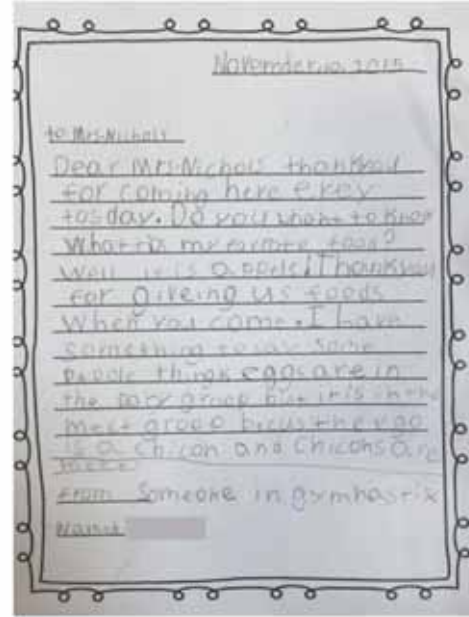 November 10, 2015
to Mrs. Nichols
Dear Mrs. Nichols thankyou
for coming here evey
tosday. Do you whant to know
What is my favorite food?
Well it is apple! Thankyou
for giveing us foods
When you come. I have
something to say some
people think eggs are in
the dary groop but it is in the
meet groop becus the egg
is a chicon and chicons are
From Someone in gymnastix
Name